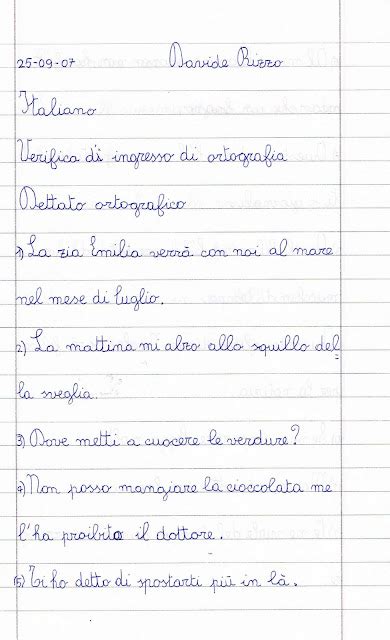 25-09-07 Davide Rizzo
Italiano
Verifica di ingresso di ortografia
Dettato ortografico
1) La zia Emilia verrà con noi al mare
nel mese di luglio.
2) La mattina mi alzo allo squillo del
la sveglia.
3) Dove metti a cuocere le verdure?
4) Non posso mangiare la cioccolata me
l'ha proibito il dottore.
5) Ti ho detto di spostarti più in là.